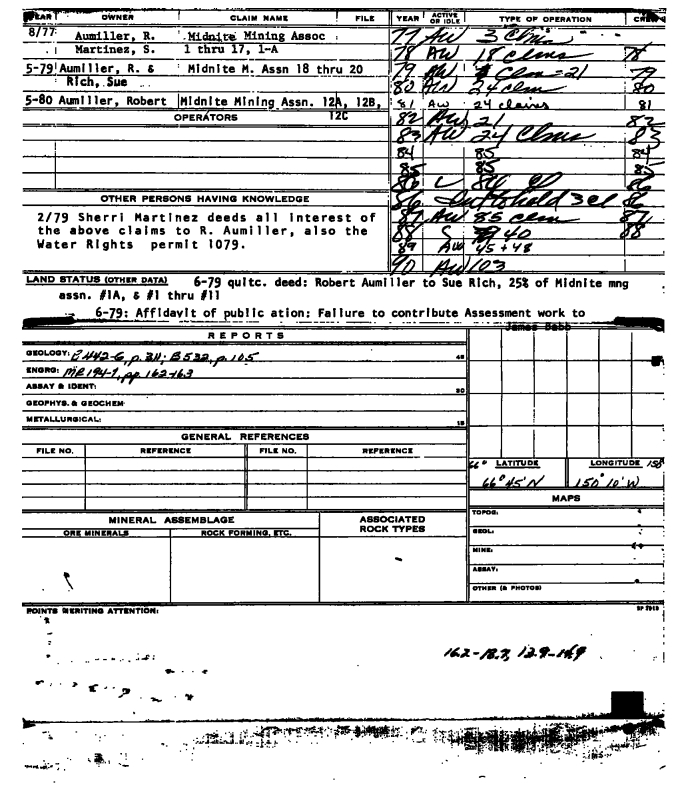 YEAR OWNER CLAIM NAME FILE YEAR ACTIVE OR IDLE TYPE OF OPERATION
8/77 Aumiller, R. Midnite Mining Assoc 77 AW 3 Clms
Martinez, S. 1 thru 17, 1-A 78 AW 18 clms 78
5-79 Aumiller, R. & Midnite M. Assn 18 thru 20 79 AW Clm = 21 79
Rich, Sue 80 AW 24 clm 80
5-80 Aumiller, Robert Midnite Mining Assn. 12A, 12B, 81 AW 24 claims 81
12C
OPERATORS 82 AW 21 82
83 AW 24 Clms 83
84 85 84
85 85 85
86 86
OTHER PERSONS HAVING KNOWLEDGE 86 86
2/79 Sherri Martinez deeds all interest of 87 AW 85 clm 87
the above claims to R. Aumiller, also the 88 S 40 88
Water Rights permit 1079. 89 AW 45 + 48
90 AW 103
LAND STATUS (OTHER DATA) 6-79 quitc. deed: Robert Aumiller to Sue Rich, 25% of Midnite mng
assn. #1A, & #1 thru #11
6-79: Affidavit of public ation: Failure to contribute Assessment work to
James Babb
REPORTS
GEOLOGY: B442-G, p.311; B532, p.105
ENGRG: MR194-1, pp 162-163
ASSAY & IDENT:
GEOPHYS. & GEOCHEM
METALLURGICAL:
GENERAL REFERENCES
FILE NO. REFERENCE FILE NO. REFERENCE
66° LATITUDE LONGITUDE 150°
66°45'N 150°10'W
MAPS
MINERAL ASSEMBLAGE ASSOCIATED ROCK TYPES
ORE MINERALS ROCK FORMING, ETC.
TOPOG:
GEOL:
MINE:
ASSAY:
OTHER (& PHOTOS)
POINTS MERITING ATTENTION: